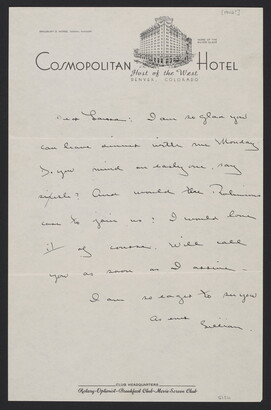 COSMOPOLITAN HOTEL
Host of the West
DENVER, COLORADO
I am so glad you
can have dinner with me Monday
Do you mind an early one, say
And would the
care to join us? I would love
it of course. Will call
you as soon as I arrive.
I am so eager to see you
As ever
Lillian.
CLUB HEADQUARTERS
Rotary-Optimist-Breakfast Club-Movie Screen Club